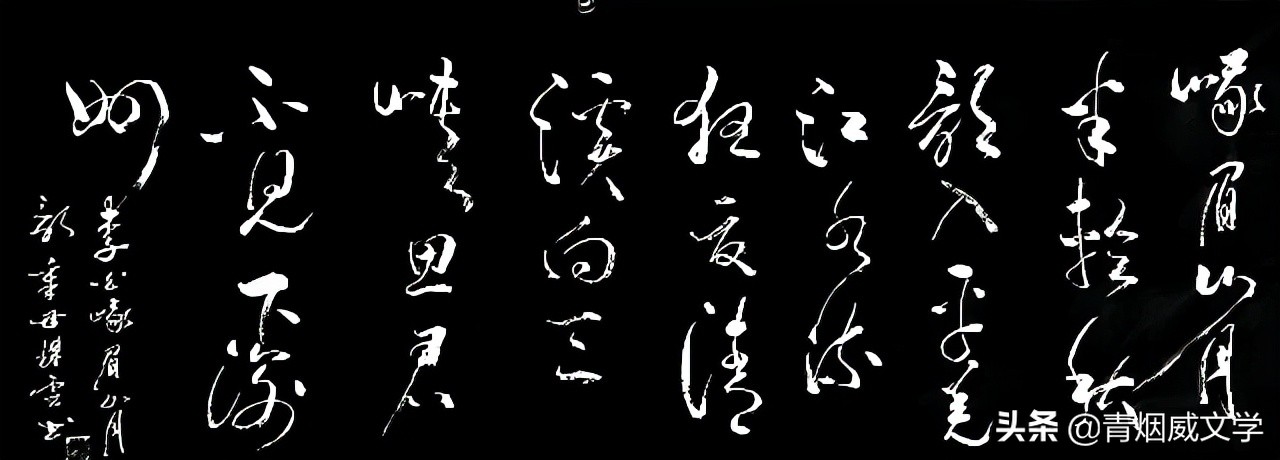 峨眉山月
半輪秋
影入平羌
江水流
夜發清
溪向三
峽思君
不見下渝
州
李白峨眉山月
歌 雲書
头条 @青烟威文学